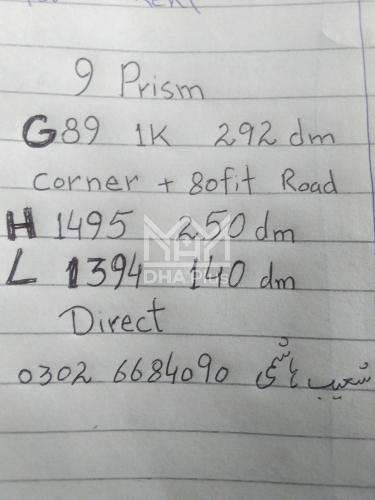 9 Prism
G 89 1K 292 dm
corner + 80fit Road
H 1495 250 dm
DHA Plus
L 1394 140 dm
Direct
0302 6684090 شعیب ہاشمی